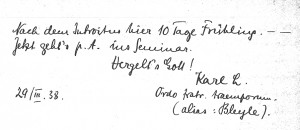 Nach dem Introitus hier 10 Tage Frühling. — —
Jetzt geht's p.A. ins Seminar.
Vergelt's Gott!
Karl L.
29/III. 38. Ordo fratr.
(alias: Bleyle).